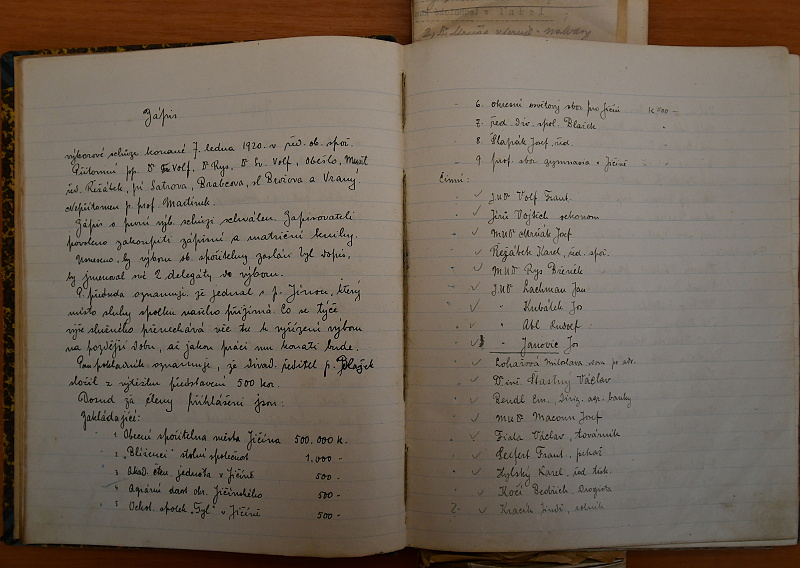 Zápis
výborové schůze konané 7. ledna 1920 v řed. ob. spoř.
Přítomni pp. Dr Fr Volf, Dr Rys, Dr Ev. Volf, Obešlo, Musil
řed. Řežábek, pí Satrova, Brabcova, sl Brožova a Vraný.
Nepřítomen p. prof. Martinek.
Zápis o první výb. schůzi schválen. Zapisovateli
povoleno zakoupiti zápisní a matriční knihy.
Usneseno, by výboru ob. spořitelny zaslán byl dopis,
by jmenoval své 2 delegáty do výboru.
P. předseda oznamuje, že jednal s p. Jírou, který
místo sluhy spolku našeho přijímá. Co se týče
výše služného přenechává věc tu k vyřízení výboru
na pozdější dobu, až jakou práci mu konati bude.
Pan pokladník oznamuje, že divad. ředitel p. Blažek
složil z výtěžku představení 500 kor.
Dosud za členy přihlášeni jsou:
Zakládající:
1 Obecní spořitelna města Jičína 500.000 K.
2 "Blíženci" stolní společnost 1.000 -
3 Akad. čten. jednota v Jičíně 500 -
4 Agrární dorost okr. Jičínského 500 -
5 Ochot. spolek "Tyl" v Jičíně 500 -
6. okresní osvětový sbor pro Jičín K 500 -
7. řed. div. spol. Blažek "
8. Šlapák Josef, řed. "
9. prof. sbor gymnasia v Jičíně "
Činní:
JUDr Volf Frant.
Jírů Vojtěch ekonom
MUDr Mrňák Josef
Řežábek Karel, řed. spoř.
MUDr Rys Zdeněk
JUDr Lachman Jan
" Kubálek Jos
" Abl Rudolf
" Janovic Jos
Loharová Miloslava
Dr iné. Šťastný Václav
Pendl Em., dirig. agr. banky
MUDr Macoun Josef
Fiala Václav, továrník
Seifert Frant., pekař
Kylský Karel, řed. tisk.
Kočí Bedřich, drogista
Kracík Jindř., rolník